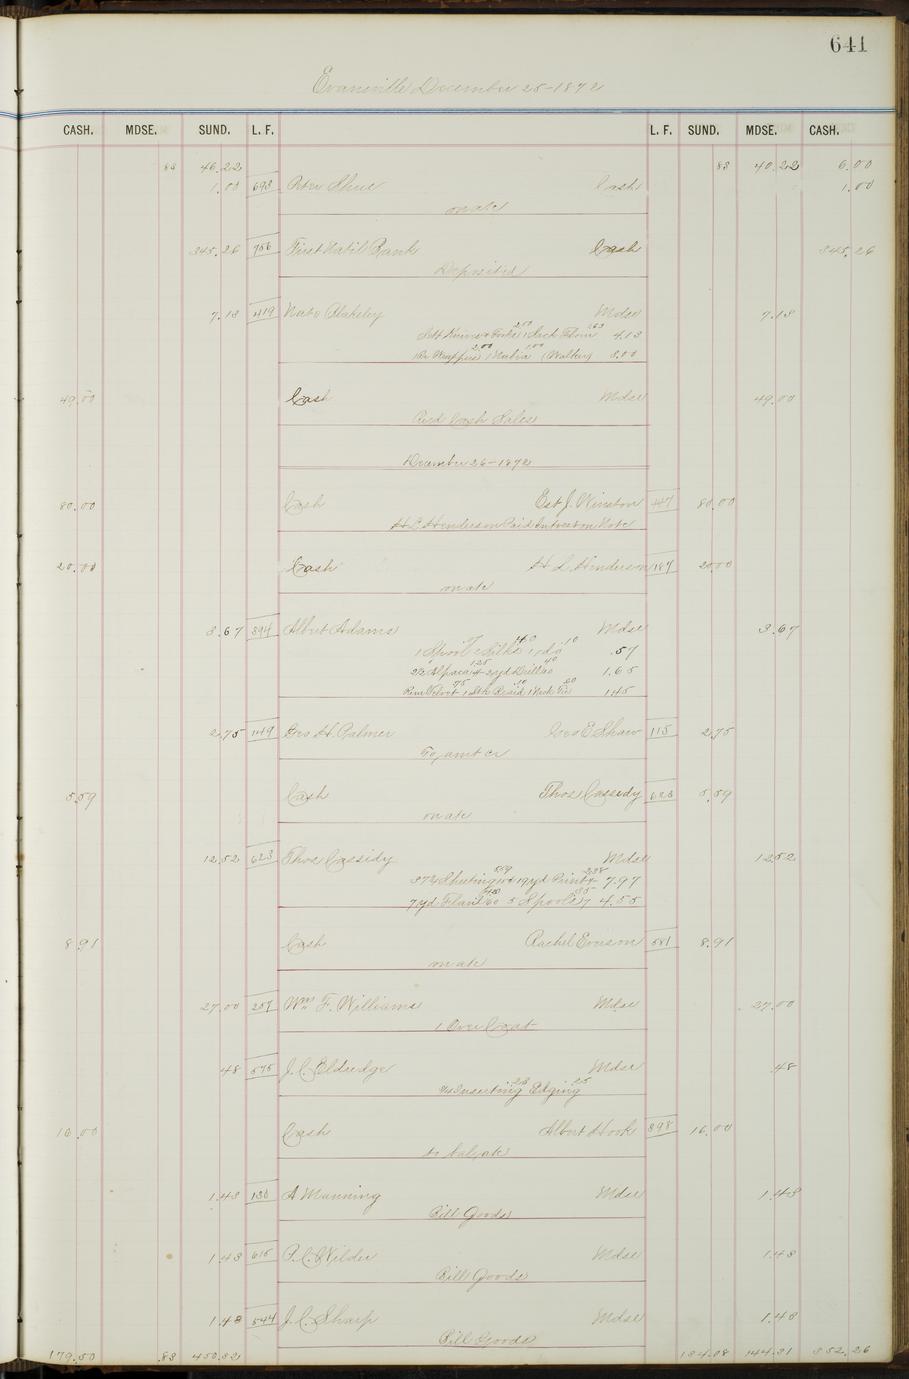 641
Evansville December 25-1872
CASH. MDSE. SUND. L. F. L. F. SUND. MDSE. CASH.
83 46.22 83 40.22 6.00
1.00 693 Peter Shue Cash 1.00
on a/c
345.26 756 First Nat'l Bank Cash 345.26
Deposited
7.13 419 Nate Blakeley Mdse 7.13
Sett Knives & Forks 2.50 1 Sack Flour 1.63 4.13
2.00 1 Nubia 1.00 (Walter) 3.00
49.00 Cash Mdse 49.00
Rec'd Cash Sales
December 26-1872
80.00 Cash Est J. Winston 47 80.00
H L Henderson Paid Interest on Note
20.00 Cash H L Henderson 187 20.00
on a/c
3.67 394 Albert Adams Mdse 3.67
1 Spool 7 Silks 40 1 do 10 .57
Alpaca 1.25 4 yd Drill 40 1.65
Velvet 75 Braid 10 1 Neck Tie 60 1.45
2.75 149 Geo H. Palmer Geo E Shaw 115 2.75
To amt cr
5.59 Cash Thos Cassidy 623 5.59
on a/c
12.52 623 Thos Cassidy Mdse 12.52
37 1/4 Sheeting 15 5.59 19 yd Print 2.38 7.97
7 yd Flanl 60 4.20 5 Spools 7 35 4.55
8.91 Cash Rachel Evieson 581 8.91
on a/c
27.00 257 Wm F. Williams Mdse 27.00
1 Over Coat
48 575 J. C. Eldredge Mdse .48
Inserting 23 Edging 25
16.00 Cash Albert Hook 398 16.00
to bal a/c
1.48 130 A Manning Mdse 1.48
Bill Goods
1.48 615 P. C. Wilder Mdse 1.48
Bill Goods
1.48 544 J. C. Sharp Mdse 1.48
Bill Goods
179.50 .83 450.32 134.08 144.31 352.26